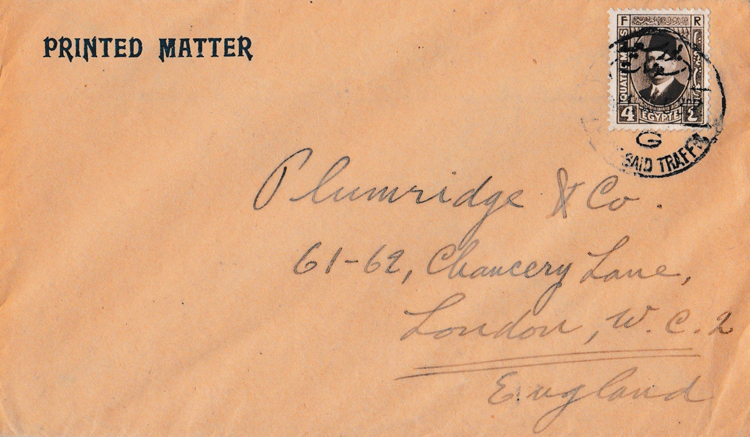 PRINTED MATTER
F R
QUATRE MILLS
4 EGYPTE ٤
G
SAID TRAFFI
Plumridge & Co.
61-62, Chancery Lane,
London, W.C.2
England